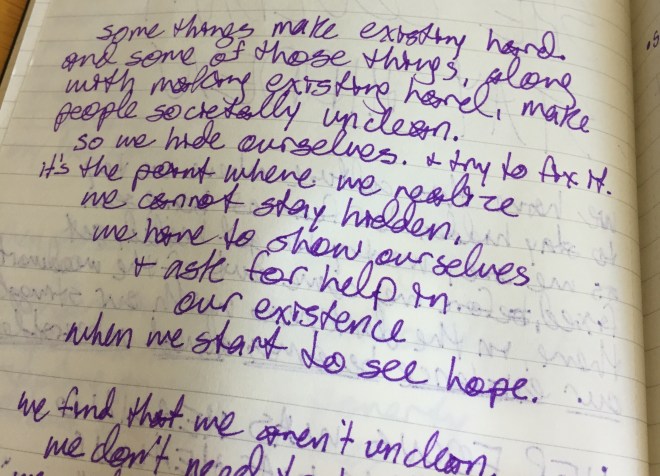 some things make existing hard.
and some of those things, along
with making existing hard, make
people societally unclean.
so we hide ourselves. + try to fix it.
it's the point where we realize
we cannot stay hidden,
we have to show ourselves
+ ask for help in
our existence
when we start to see hope.
we find that we aren't unclean.
we don't need to